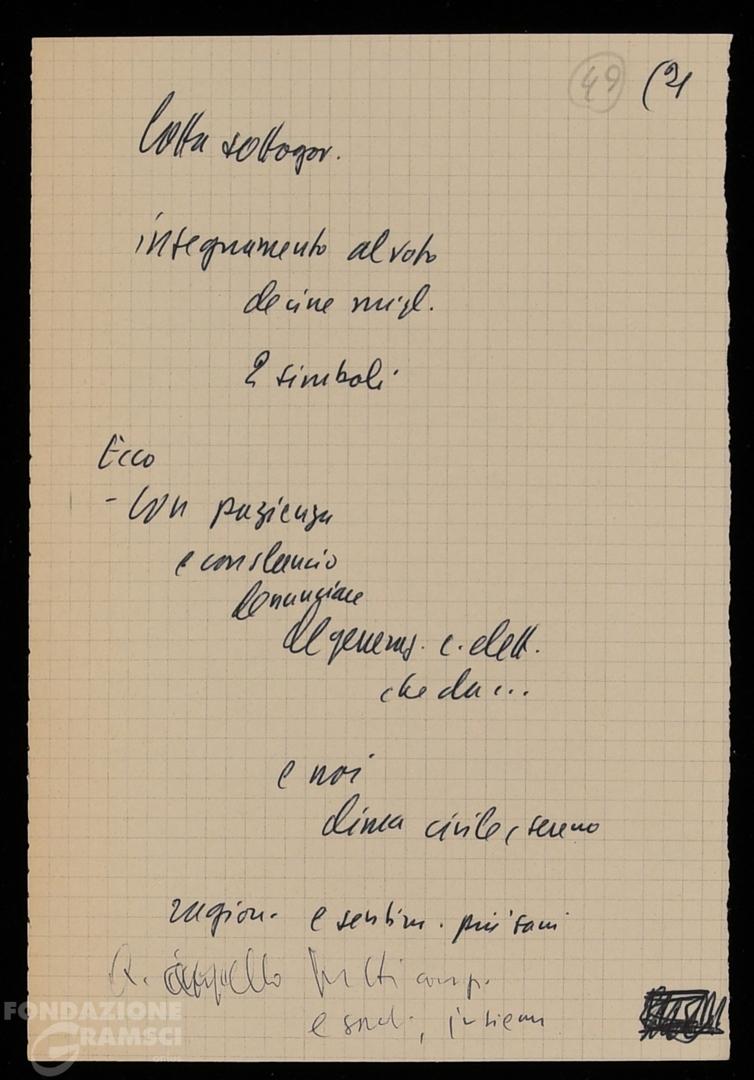 49 (21
Lotta sottogov.
insegnamento al voto
decine migl.
2 simboli
Ecco
- Con pazienza
e con slancio
denunciare
degeneraz. c. elett.
che da...
e noi
clima civile, sereno
ragion. e sentim. più sani
tutti comp.
e , insiem
FONDAZIONE
GRAMSCI